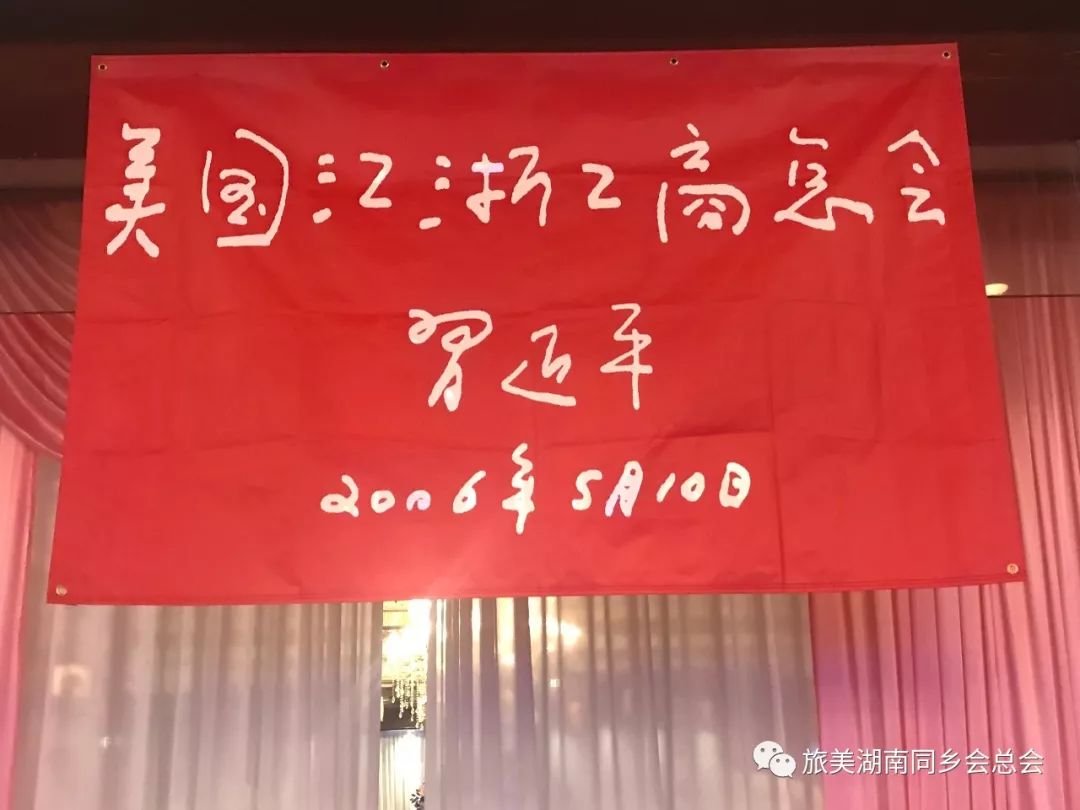 美国江浙工商总会
习近平
2006年5月10日
旅美湖南同乡会总会